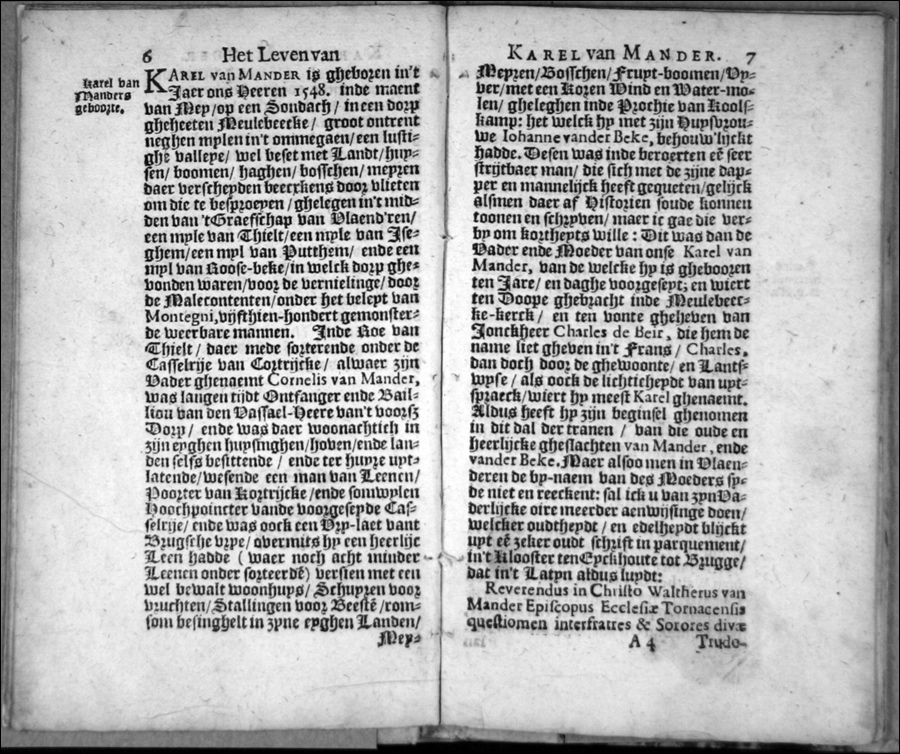 6 Het Leven van
Karel van
Manders
geboorte.
KAREL van MANDER is gheboren in't
Jaer ons Heeren 1548. inde maent
van Mey/op een Sondach/ in een dorp
gheheeten Meulebeecke/ groot ontrent
neghen mylen in't ommegaen/een lusti-
ghe valleye/ wel beset met Landt/huy-
sen/ boomen/ haghen/ bosschen/ meyren
daer verscheyden beecxkens door vlieten
om die te besproeyen/ ghelegen in't mid-
den van 'tGraefschap van Vlaend'ren/
een myle van Thielt/een myle van Ise-
ghem/een myl van Putthem/ ende een
myl van Roose-beke/in welck dorp ghe-
vonden waren/voor de vernielinge/door
de Malecontenten/onder het beleyt van
Montegni,vijfthien-hondert gemonster-
de weerbare mannen. Inde Roe van
Thielt/ daer mede sorterende onder de
Casselrije van Cortrijcke/ alwaer zijn
Vader ghenaemt Cornelis van Mander,
was langen tijdt Ontfanger ende Bail-
liou van den Vassael-Heere van't voorsz
Dorp/ ende was daer woonachtich in
zijn eyghen huysinghen/hoven/ende lan-
den selfs besittende/ ende ter huyre uyt-
latende/wesende een man van Leenen/
Poorter van Kortrijcke/ende somwylen
Hoochpointcter vande voorgeseyde Cas-
selrije/ ende was oock een Vry-laet vant
Brugsche vrye/ overmits hy een heerlijc
Leen hadde (waer noch acht minder
Leenen onder sorteerdē) versien met een
wel bewalt woonhuys/ Schuyren voor
vruchten/Stallingen voor Beestē/rom-
som besinghelt in zyne eyghen Landen/
Mey-
KAREL van MANDER. 7
Meyren/Bosschen/Fruyt-boomen/Vy-
ver/met een Koren Wind en Water-mo-
len/ gheleghen inde Prochie van Kools-
kamp: het welck hy met zijn Huysvrou-
we Iohanne vander Beke, behouw'lijckt
hadde. Desen was inde beroerten eē seer
strijtbaer man/ die sich met de zijne dap-
per en mannelijck heeft gequeten/gelijck
alsmen daer af Historien soude konnen
toonen en schryven/ maer ic gae die ver-
by om kortheyts wille: Dit was dan de
Vader ende Moeder van onse Karel van
Mander, van de welcke hy is ghebooren
ten Jare/ en daghe voorgesept; en wiert
ten Doope ghebracht inde Meulebeec-
ke-kerck/ en ten vonte gheheven van
Jonckheer Charles de Beir, die hem de
name liet gheven in't Frans/ Charles,
dan doch door de ghewoonte/ en Lants-
wyse/ als oock de lichticheydt van uyt-
spraeck/wiert hy meest Karel ghenaemt.
Aldus heeft hy zijn beginsel ghenomen
in dit dal der tranen/ van die oude en
heerlijcke gheslachten van Mander, ende
vander Beke. Maer alsoo men in Vlaen-
deren de by-naem van des Moeders sy-
de niet en reeckent: sal ick u van zyn Va-
derlijcke oire meerder aenwijsinge doen/
welcker oudtheydt/ en edelheydt blijckt
uyt eē zeker oudt schrift in parquement/
in't Klooster ten Eyckhoute tot Brugge/
dat in't Latyn aldus luydt:
Reverendus in Christo Waltherus van
Mander Episcopus Ecclesiæ Tornacensis
questiomen interfratres & Sorores divæ
A 4 Trudo-